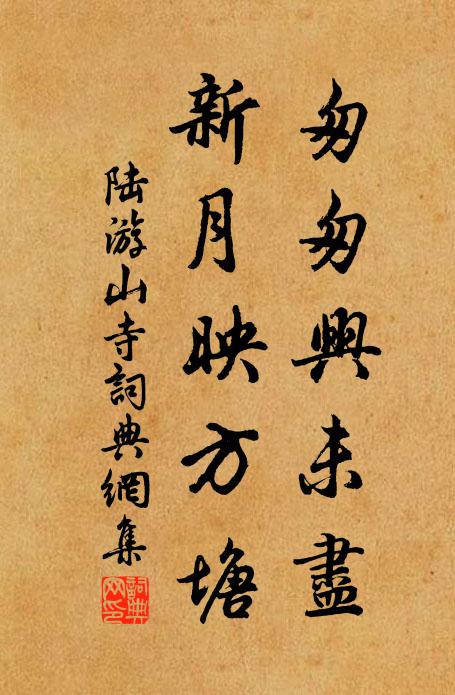 匆匆興未盡
新月映方塘
陸游山寺詞典網集
詞典
网印